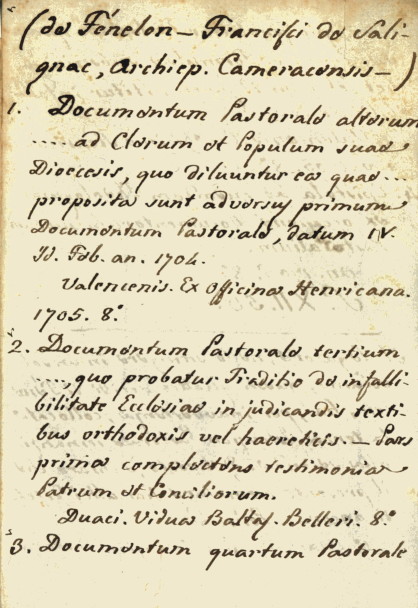 (de Fénelon — Francisci de Sali-
gnac, Archiep. Cameracensis —)
1. Documentum Pastorale alterum
.... ad Clerum et Populum suae
Dioecesis, quo diluuntur ea quae ...
proposita sunt adversus primum
Documentum Pastorale, datum IV.
Id. Feb. an. 1704.
Valencenis. Ex Officina Henricana.
1705. 8.º
2. Documentum Pastorale tertium
...., quo probatur Traditio de infalli-
bilitate Ecclesiae in judicandis texti-
bus orthodoxis vel haereticis. — Pars
prima complectens testimonia
Patrum et Conciliorum.
Duaci. Vidua Baltas. Belleri. 8.º
3. Documentum quartum Pastorale